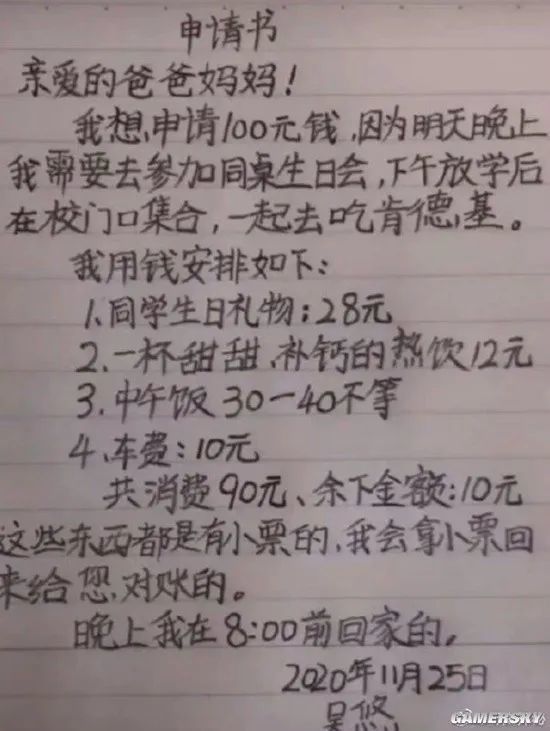 申请书
亲爱的爸爸妈妈！
我想申请100元钱，因为明天晚上
我需要去参加同桌生日会，下午放学后
在校门口集合，一起去吃肯德基。
我用钱安排如下：
1、同学生日礼物：28元
2、一杯甜甜、补钙的热饮12元
3、中午饭 30－40不等
4、车费：10元
共消费90元、余下金额：10元
这些东西都是有小票的，我会拿小票回
来给您对账的。
晚上我在8:00前回家的。
2020年11月25日
吴悠
GAMERSKY